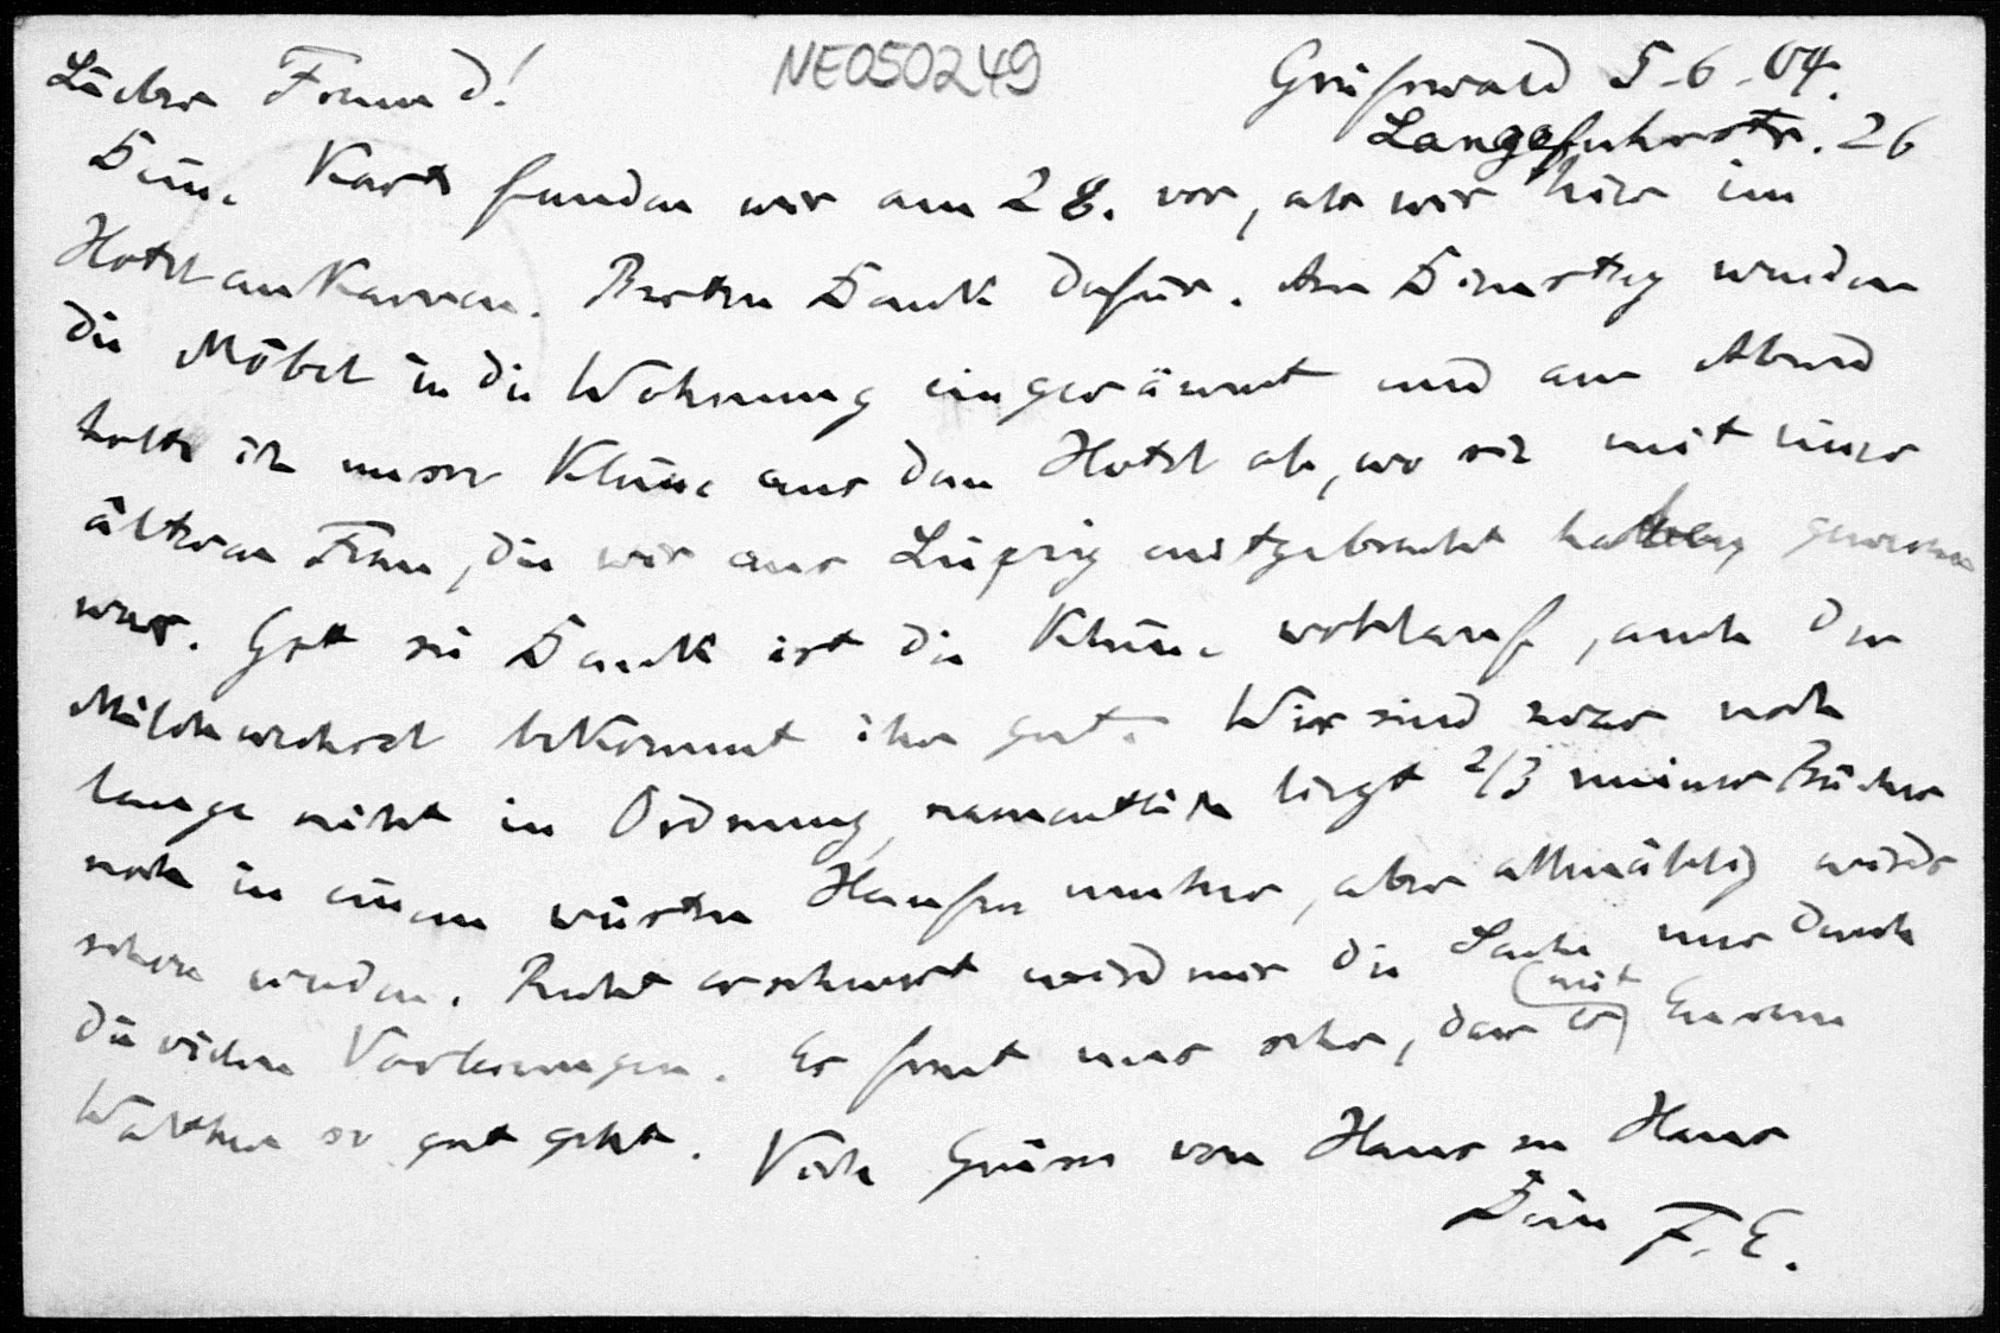 Lieber Freund!
NE050249
Greifswald 5-6-04.
Langefuhrstr. 26
Deine Karte fanden wir am 28. vor, als wir hier im
Hotel ankamen. Besten Dank dafür. Am Dienstag wurden
die Möbel in die Wohnung eingeräumt und am Abend
holte ich unsere Kleine aus dem Hotel ab, wo sie mit einer
älteren Frau, die wir aus Leipzig mitgebracht gewesen
war. Gott sei Dank ist die Kleine wohlauf, auch der
Milchwechsel bekommt ihr gut. Wir sind zwar noch
lange nicht in Ordnung, namentlich liegt 2/3 meiner Bücher
noch in einem wüsten Haufen umher, aber allmählig wirds
schon werden. Recht erschwert wird mir die Sache nur durch
die vielen Vorlesungen. Es freut uns sehr, dass es mit Eurem
Walther so gut geht. Viele Grüsse von Haus zu Haus
Dein F. E.